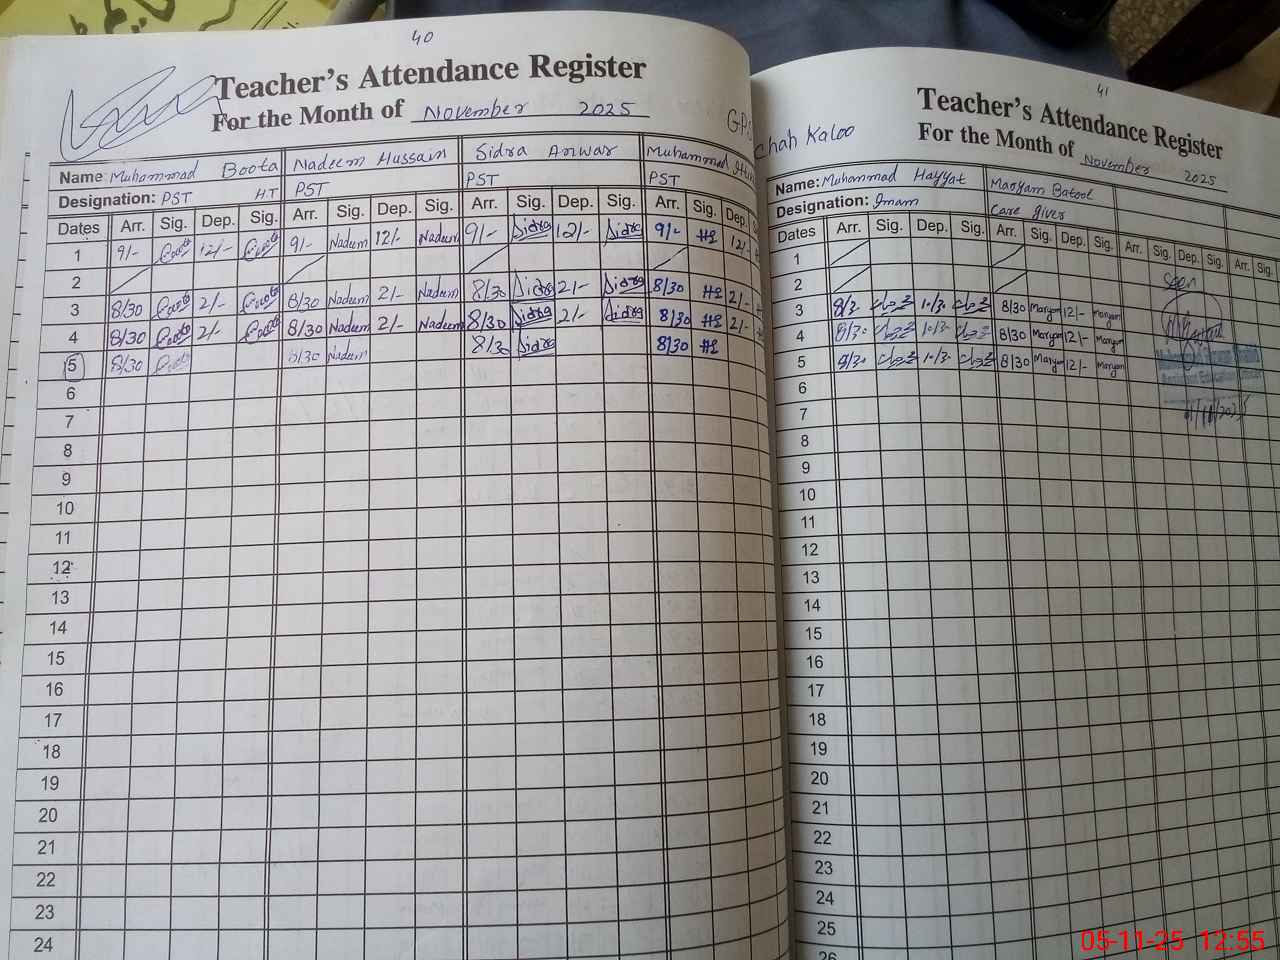 40
Teacher's Attendance Register
For the Month of November 2025
GPS
Name: Muhammad Boota Nadeem Hussain Sidra Anwar Muhammad
Designation: PST H.T PST PST PST
Dates Arr. Sig. Dep. Sig. Arr. Sig. Dep. Sig. Arr. Sig. Dep. Sig. Arr. Sig. Dep.
1 9/- 12/- 9/- Nadeem 12/- Nadeem 9/- Sidra 12/- Sidra 9/- 12/-
2
3 8/30 2/- 8/30 Nadeem 2/- Nadeem 8/30 Sidra 2/- Sidra 8/30 2/-
4 8/30 2/- 8/30 Nadeem 2/- Nadeem 8/30 Sidra 2/- Sidra 8/30 2/-
5 8/30 8/30 Nadeem 8/30 Sidra 8/30
6
7
8
9
10
11
12
13
14
15
16
17
18
19
20
21
22
23
24
41
Teacher's Attendance Register
chah Kaloo
For the Month of November 2025
Name: Muhammad Hayyat Maryam Batool
Designation: Imam Care giver
Dates Arr. Sig. Dep. Sig. Arr. Sig. Dep. Sig. Arr. Sig. Dep. Sig. Arr. Sig.
1
2
Seen
3 8/3. 1·/3· 8/30 Maryam 12/- Maryam
4 8/3. 1·/3· 8/30 Maryam 12/- Maryam
5 8/3. 1·/3· 8/30 Maryam 12/- Maryam
6
7
8
9
10
11
12
13
14
15
16
17
18
19
20
21
22
23
24
25
26
05-11-25 12:55